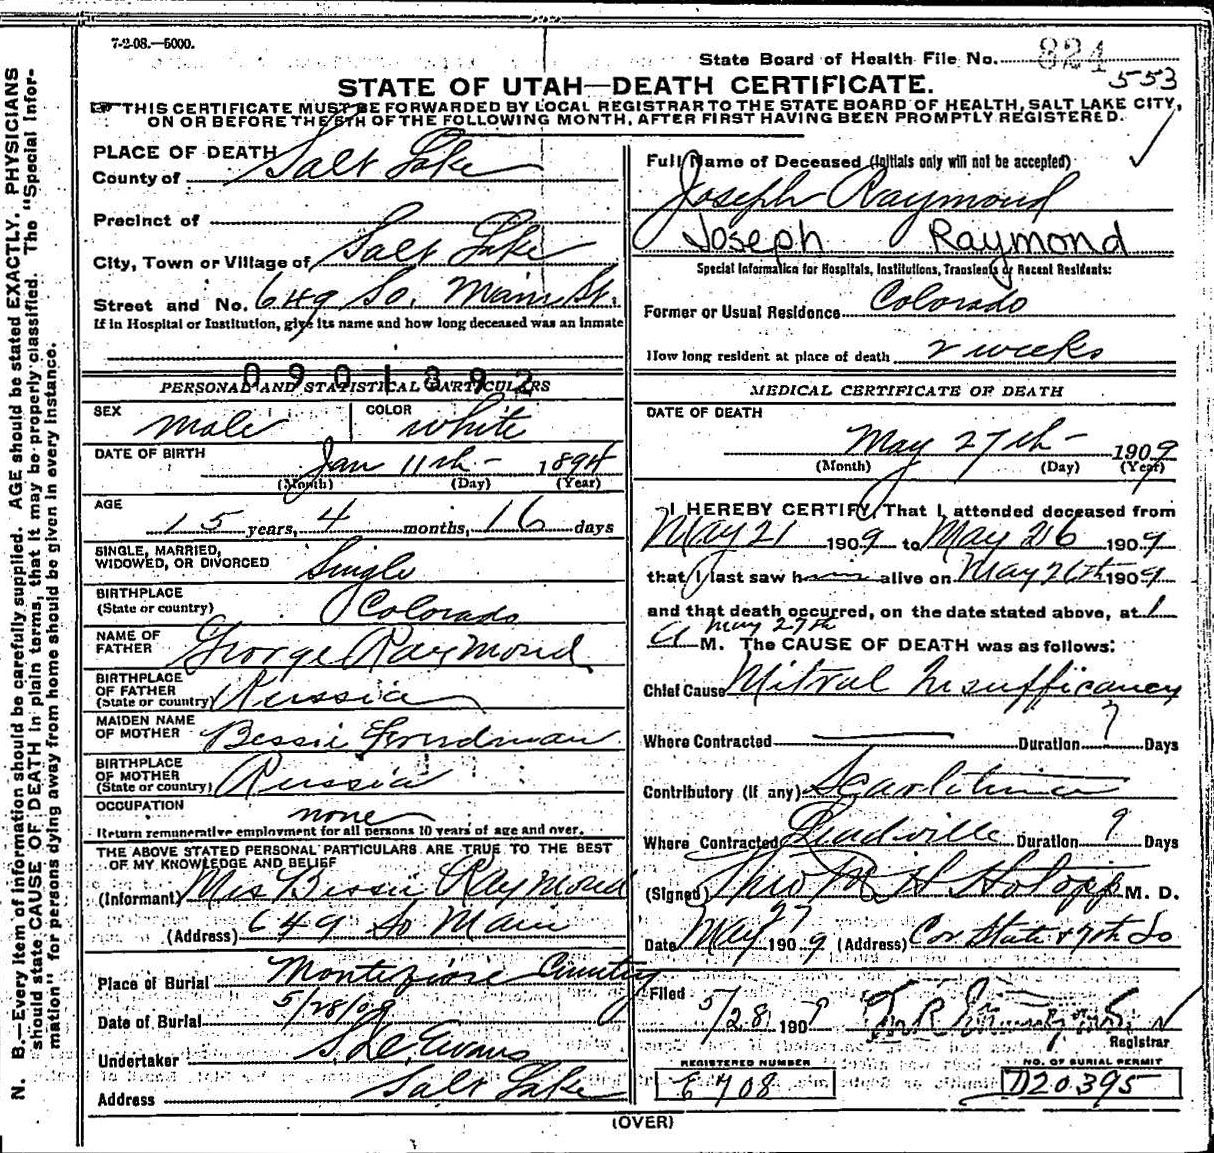 7-2-08.—5000.
State Board of Health File No. 824
553
STATE OF UTAH—DEATH CERTIFICATE.
THIS CERTIFICATE MUST BE FORWARDED BY LOCAL REGISTRAR TO THE STATE BOARD OF HEALTH, SALT LAKE CITY,
ON OR BEFORE THE 5TH OF THE FOLLOWING MONTH, AFTER FIRST HAVING BEEN PROMPTLY REGISTERED.
PLACE OF DEATH
County of Salt Lake
Precinct of
City, Town or Village of Salt Lake
Street and No. 649 So. Main St.
If in Hospital or Institution, give its name and how long deceased was an Inmate
0901392
PERSONAL AND STATISTICAL PARTICULARS
SEX male COLOR white
DATE OF BIRTH Jan 11th - 1894
(Month) (Day) (Year)
AGE 15 years, 4 months, 16 days
SINGLE, MARRIED,
WIDOWED, OR DIVORCED Single
BIRTHPLACE
(State or country) Colorado
NAME OF
FATHER George Raymond
BIRTHPLACE
OF FATHER
(State or country) Russia
MAIDEN NAME
OF MOTHER Bessie
BIRTHPLACE
OF MOTHER
(State or country) Russia
OCCUPATION none
Return remunerative employment for all persons 10 years of age and over.
THE ABOVE STATED PERSONAL PARTICULARS ARE TRUE TO THE BEST
OF MY KNOWLEDGE AND BELIEF
(Informant) Mrs Bessie Raymond
(Address) 649 So Main
Place of Burial Montefiore Cemetery
Date of Burial 5/28/09
Undertaker Evans
Address Salt Lake
Full Name of Deceased (Initials only will not be accepted)
Joseph Raymond
Joseph Raymond
Special Information for Hospitals, Institutions, Transients or Recent Residents:
Former or Usual Residence Colorado
How long resident at place of death 2 weeks
MEDICAL CERTIFICATE OF DEATH
DATE OF DEATH
May 27th - 1909
(Month) (Day) (Year)
I HEREBY CERTIFY, That I attended deceased from
May 21 1909 to May 26 1909
that I last saw him alive on May 26th 1909
and that death occurred, on the date stated above, at 1
May 27th
A M. The CAUSE OF DEATH was as follows:
Chief Cause Mitral Insufficancy
Where Contracted Duration ? Days
Contributory (If any) Scarlatina
Where Contracted Leadville Duration ? Days
(Signed) Theo M. D.
Date May 27 1909 (Address) Cor State & 7th So
Filed 5/28 1909
Registrar
REGISTERED NUMBER
E708
NO. OF BURIAL PERMIT
D20395
(OVER)
N. B.—Every item of information should be carefully supplied. AGE should be stated EXACTLY. PHYSICIANS
should state CAUSE OF DEATH in plain terms, that it may be properly classified. The "Special Infor-
mation" for persons dying away from home should be given in every instance.